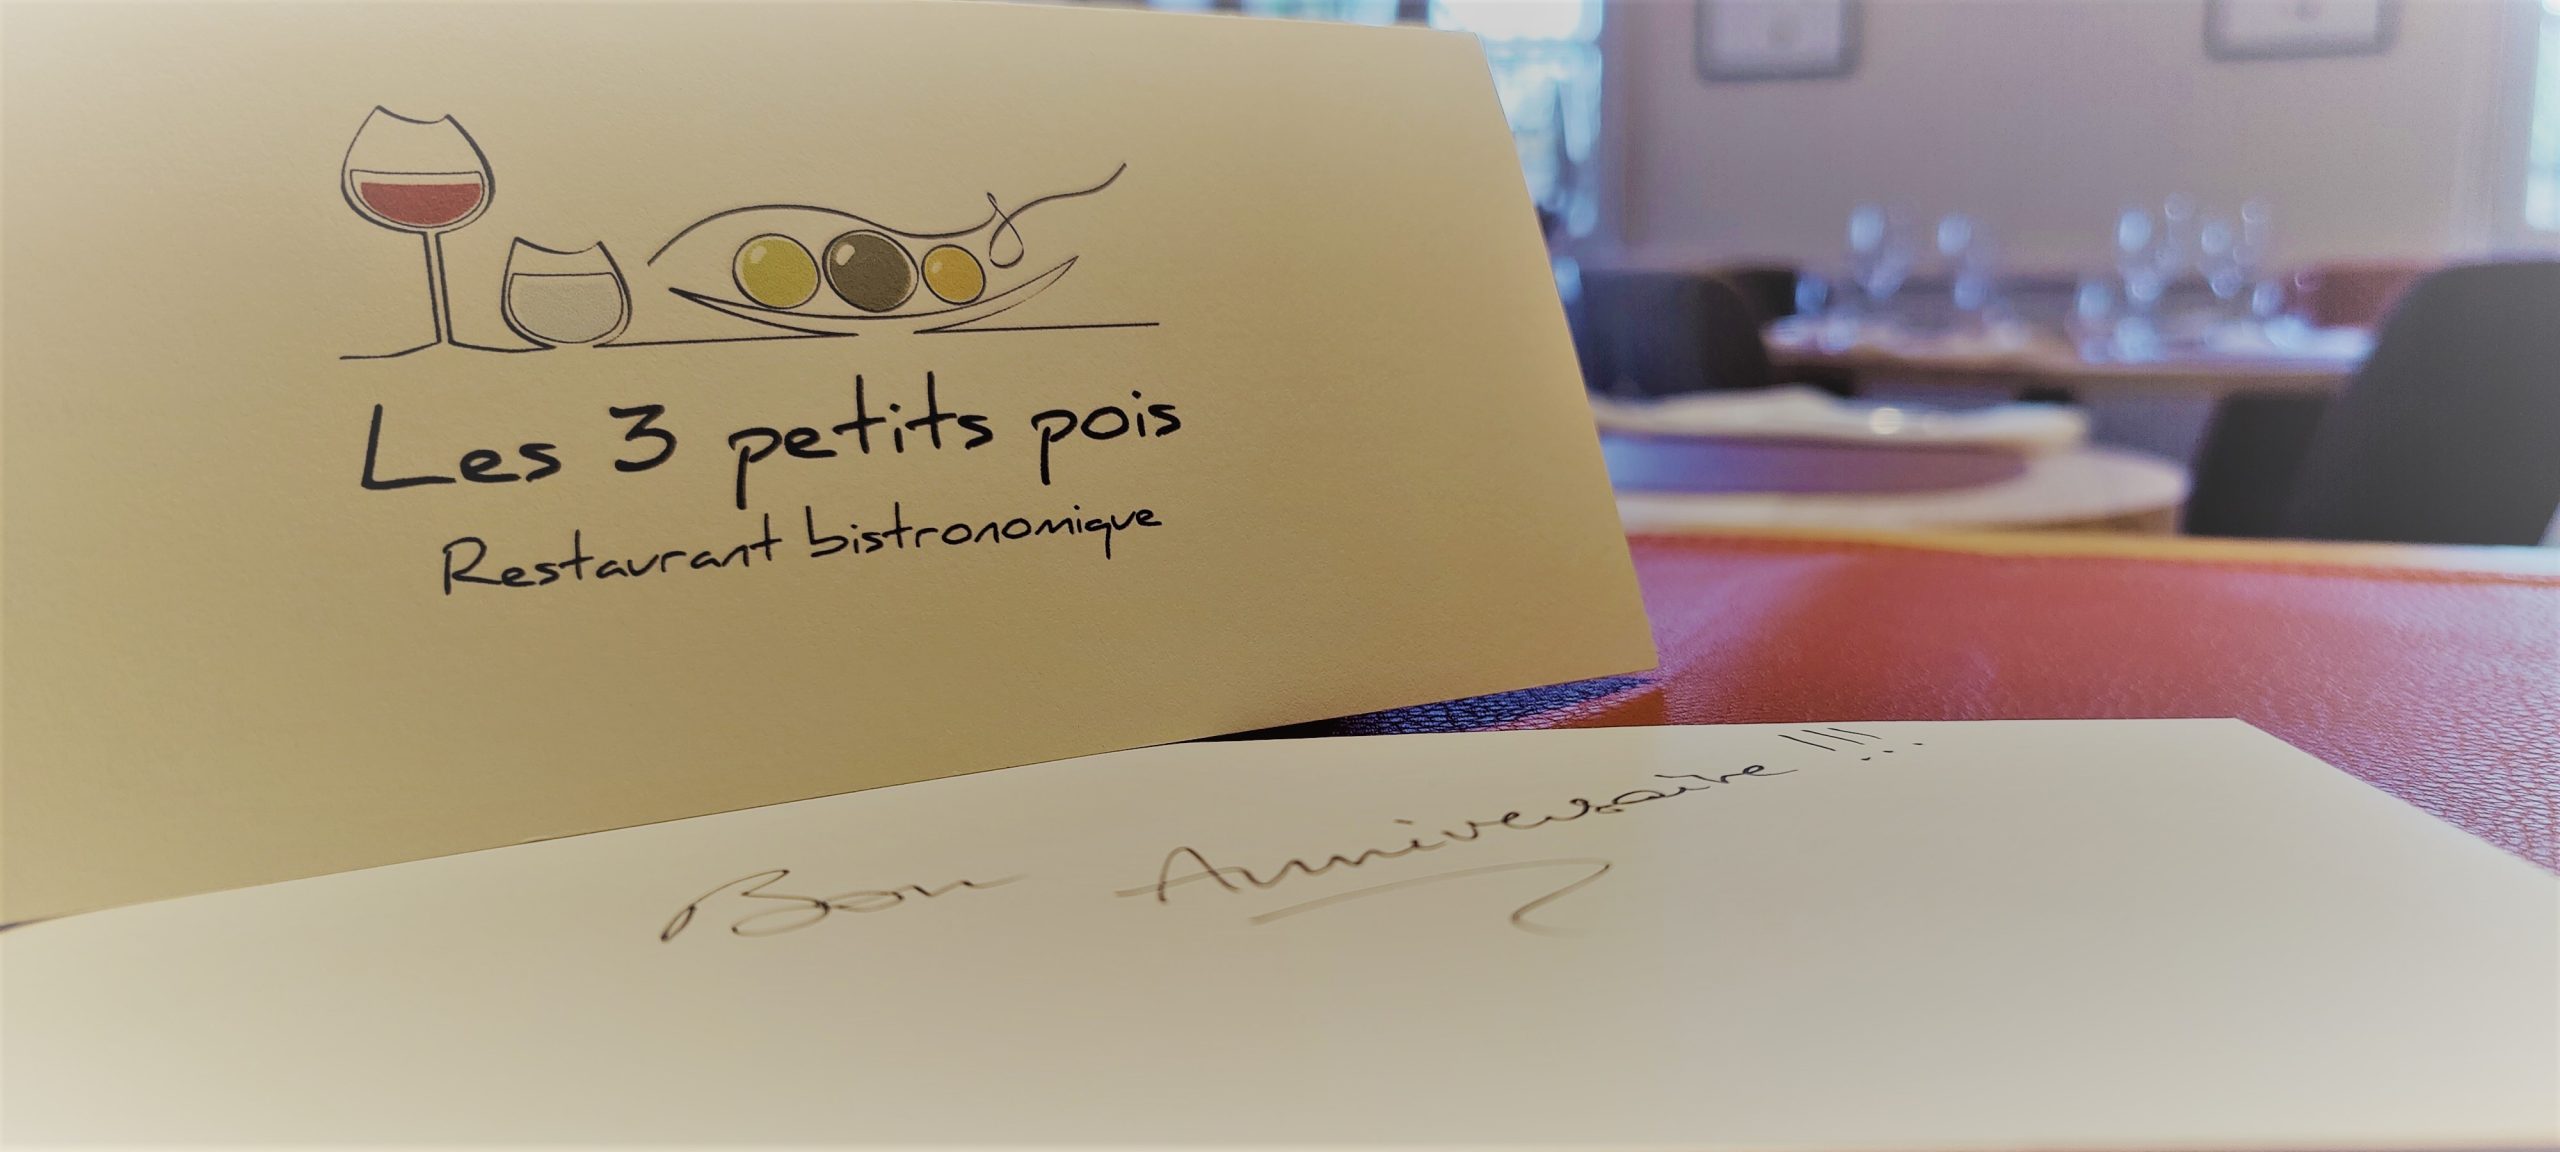 Les 3 petits pois
Restaurant bistronomique
Bon Anniversaire !!!